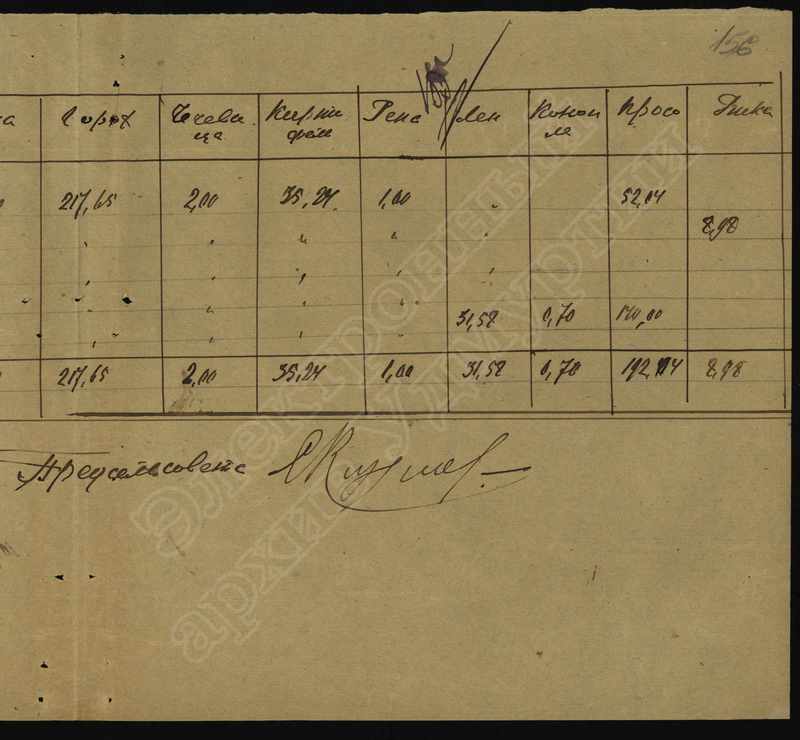 156
Горох Чечеви Карто Репа Лен Коноп Просо Вика
ца фель ля
217,65 2,00 35,24 1,00 " 52,04
" " " " " 8,98
" " " " "
" " " "
31,58 0,70 140,00
" " " "
217,65 2,00 35,24 1,00 31,58 0,70 192,04 8,98
Предсельсовета
Электронный
архив Удмуртии